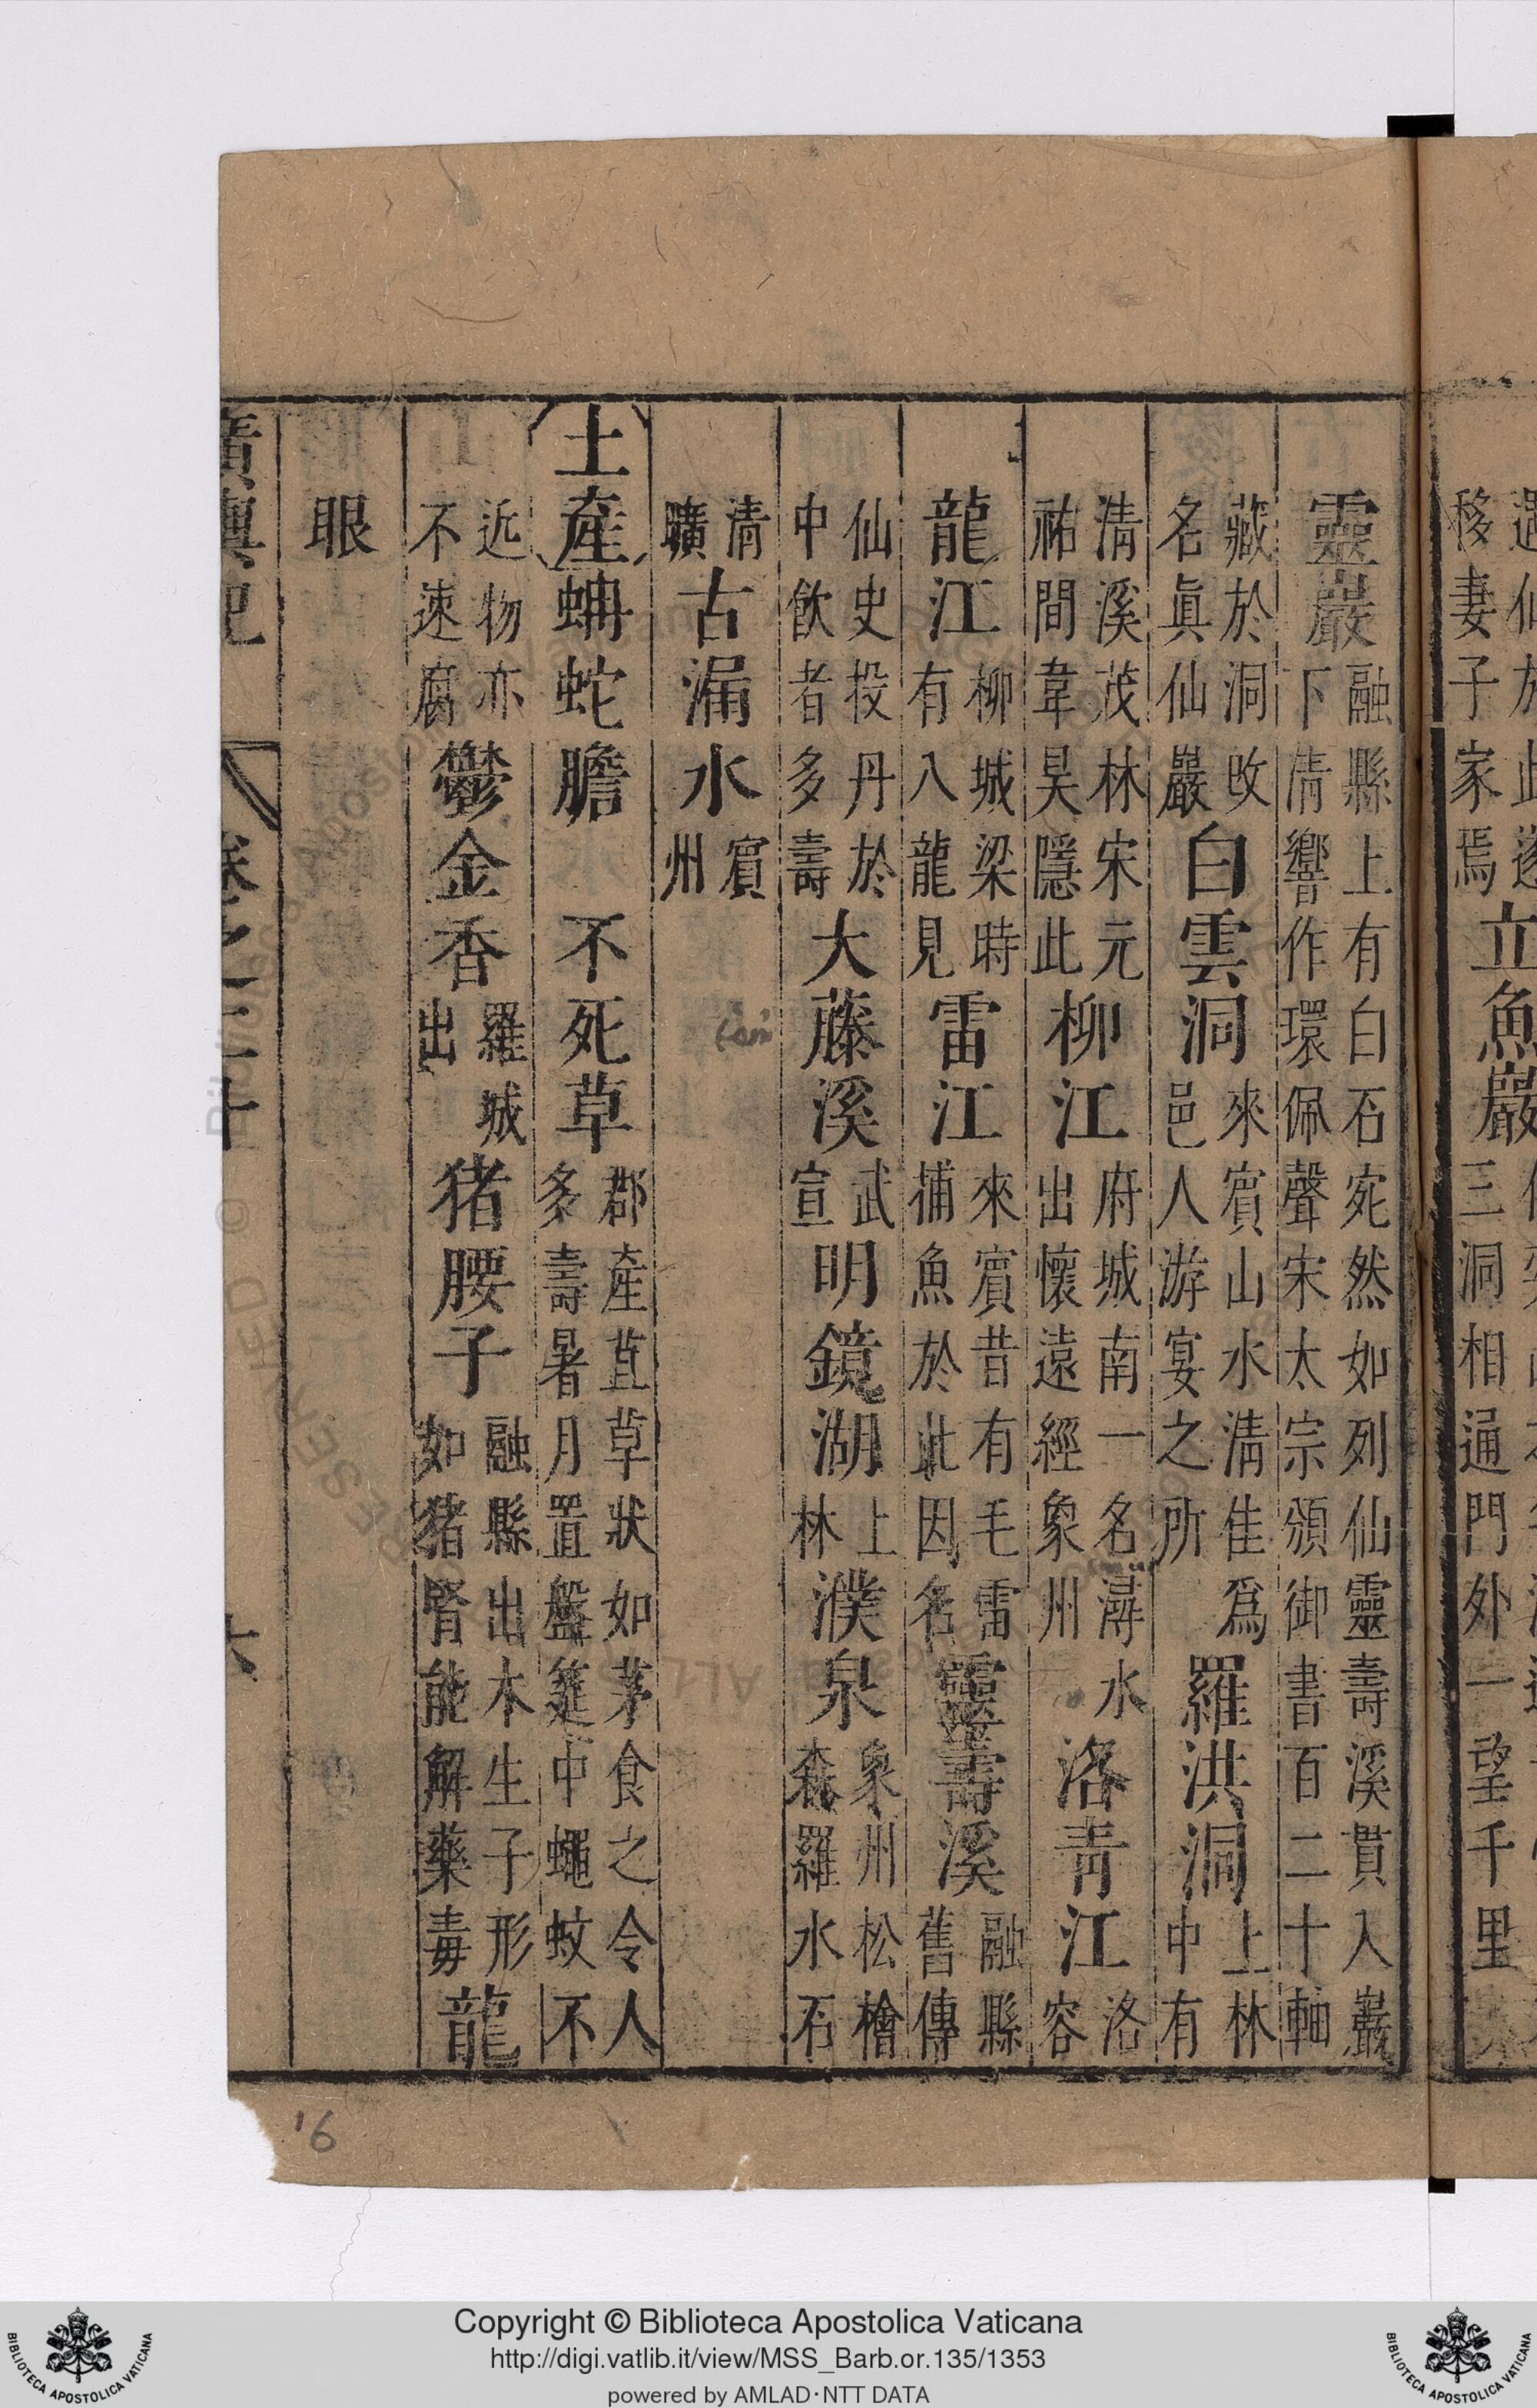 移妻子家焉立魚巖三洞相通門外一望千里
靈巖融縣上有白石宛然如列仙靈壽溪貫入巖下清響作環佩聲宋太宗頒御書百二十軸
藏於洞改名眞仙巖白雲洞來賔山水清佳爲邑人游宴之所羅洪洞上林中有
清溪茂林宋元祐間韋昊隱此柳江府城南一名潯水出懷遠經象州洛青江洛容
龍江柳城梁時有八龍見雷江來賔昔有毛雷捕魚於此因名靈壽溪融縣舊傳
仙史投丹於中飲者多壽大藤溪武宣明鏡湖上林濮泉象州松檜森羅水石
清曠古漏水賔州
土產蚺蛇膽 不死草郡產苴草狀如茅食之令人多壽暑月置盤筵中蠅蚊不
近物亦不速腐鬱金香羅城出猪腰子融縣出木生子形如猪腎能解藥毒龍
眼
廣輿記 卷之二十 六
16
Copyright © Biblioteca Apostolica Vaticana
http://digi.vatlib.it/view/MSS_Barb.or.135/1353
powered by AMLAD·NTT DATA
BIBLIOTECA APOSTOLICA VATICANA
BIBLIOTECA APOSTOLICA VATICANA